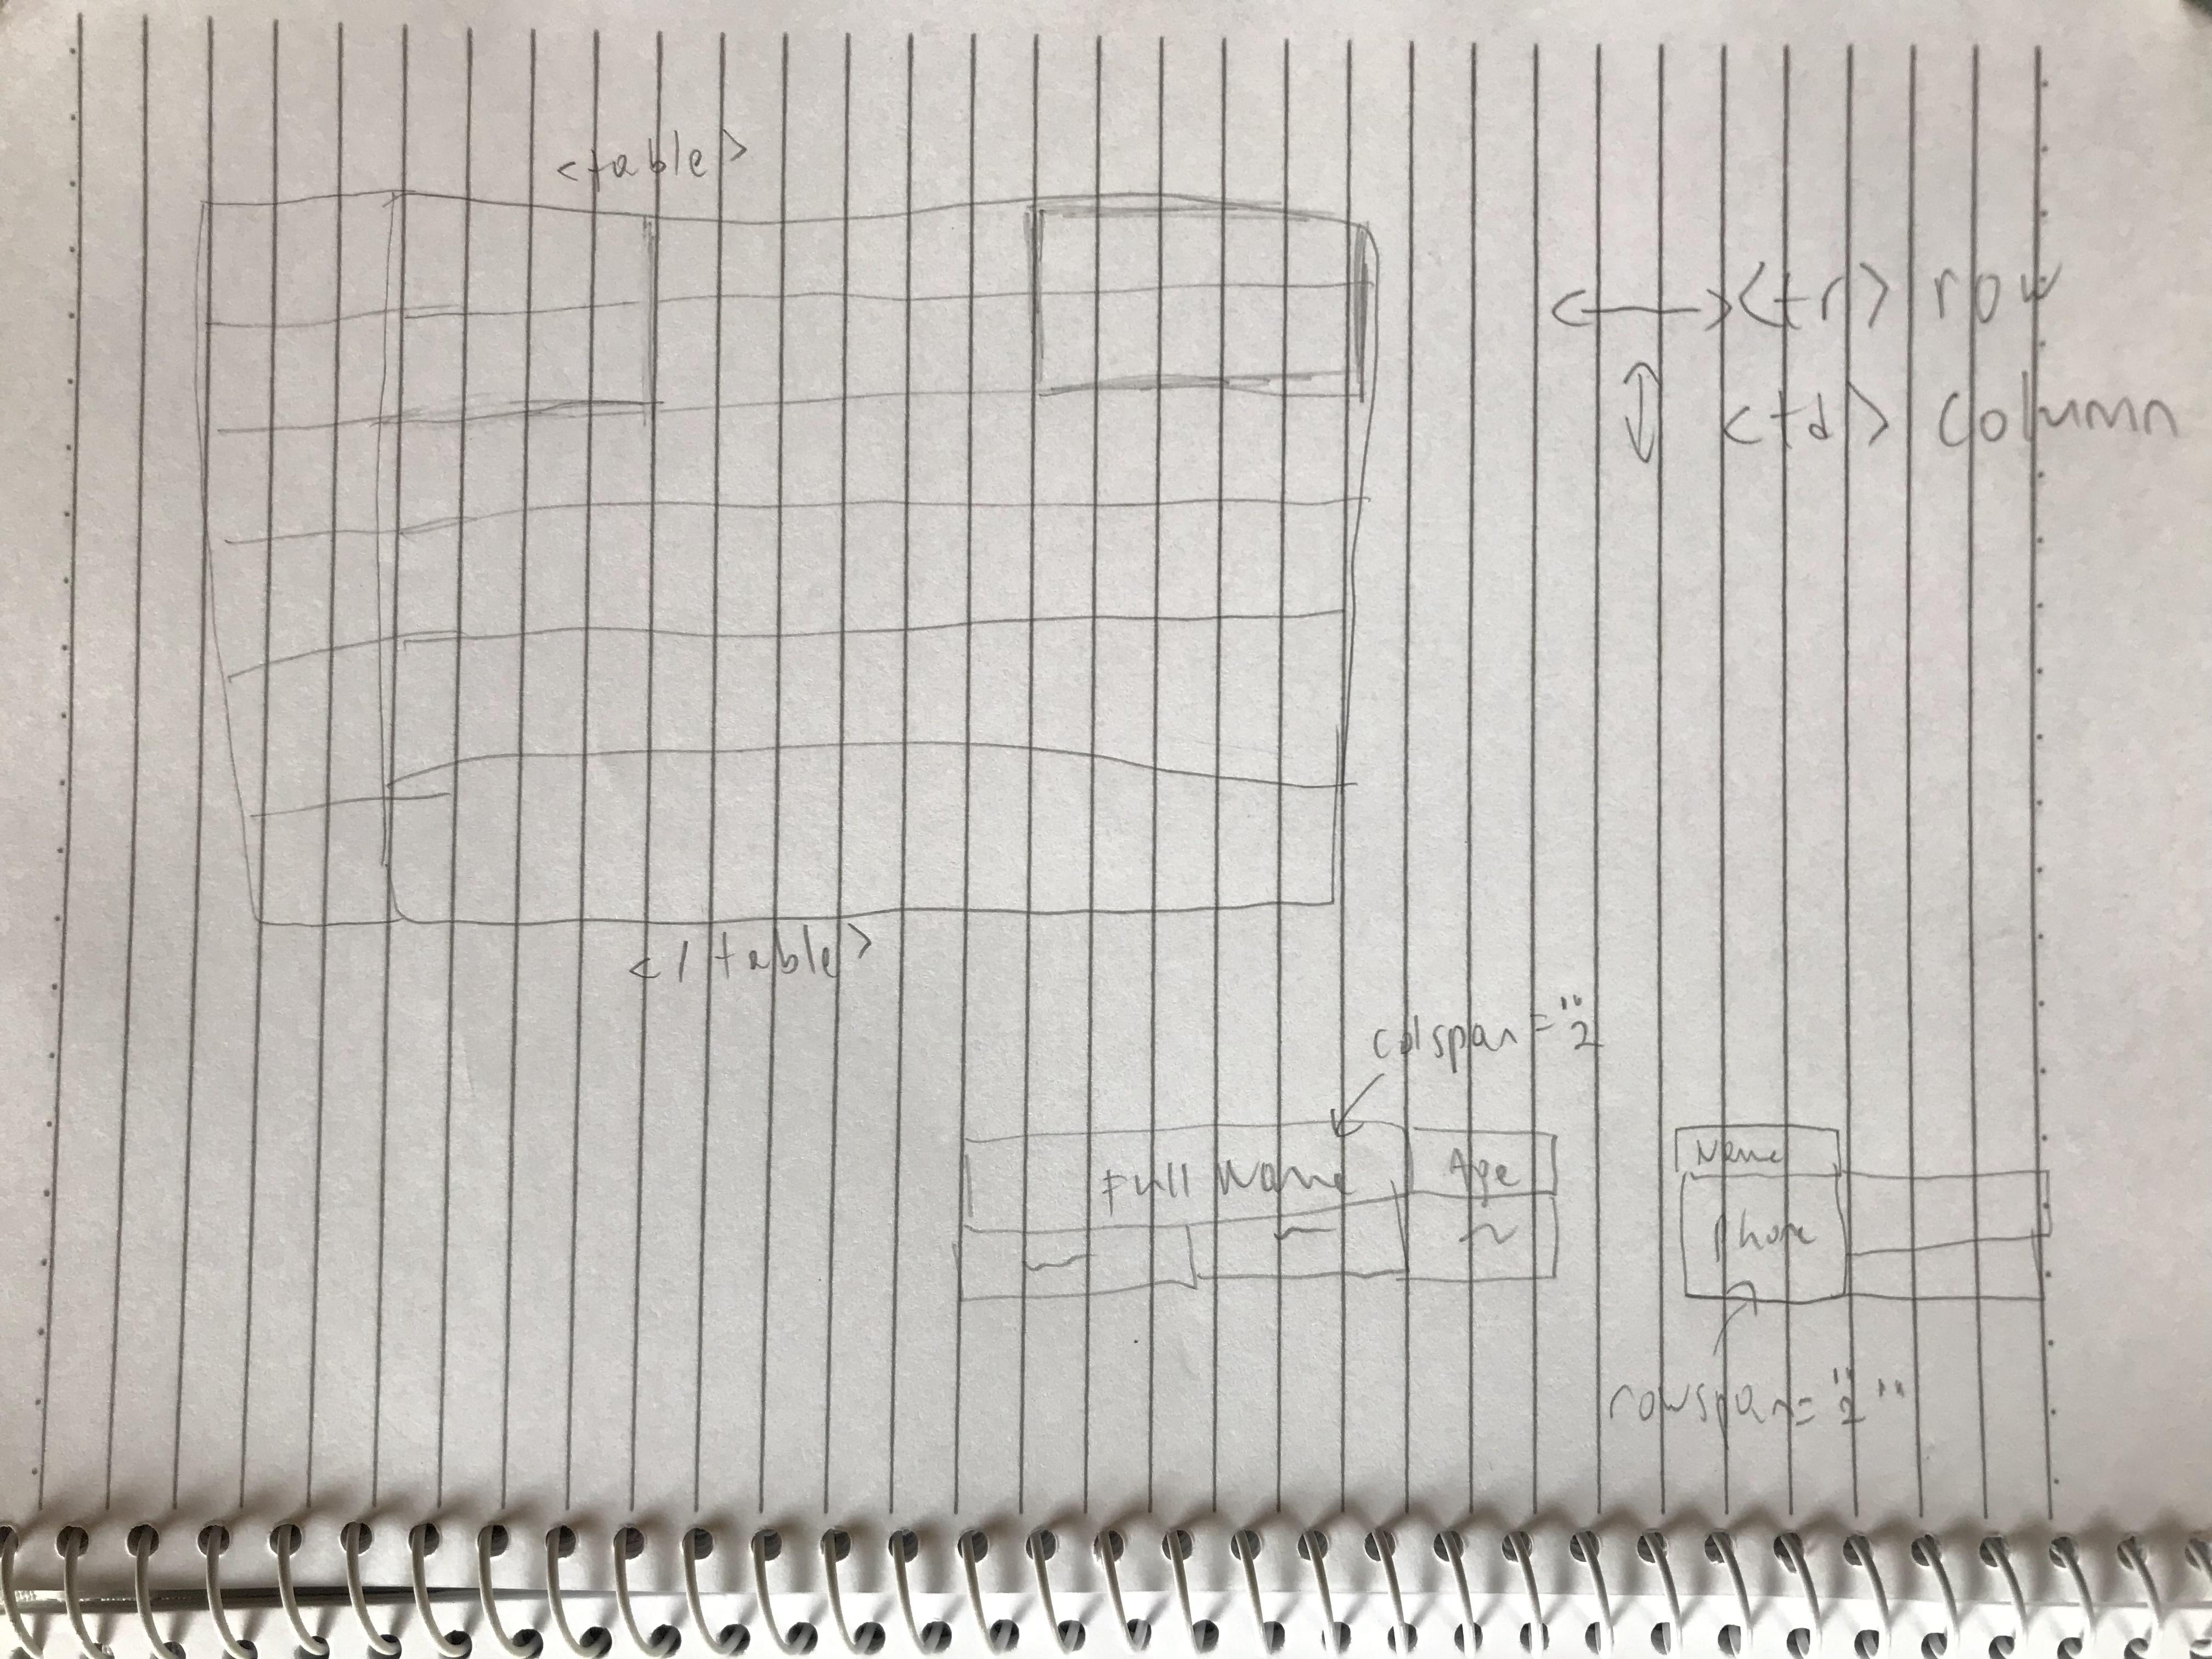 <table>
<tr> row
<td> column
</table>
colspan="2
Full Name Age
Name
Phone
rowspan="2"